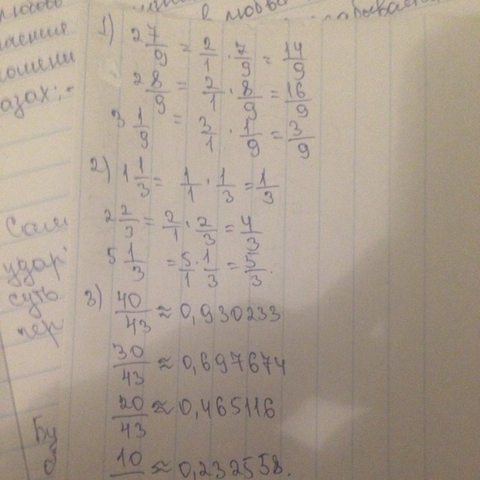 1) 2 7/9 = 2/1 · 7/9 = 14/9
2 8/9 = 2/1 · 8/9 = 16/9
3 1/9 = 3/1 · 1/9 = 3/9
2) 1 1/3 = 1/1 · 1/3 = 1/3
2 2/3 = 2/1 · 2/3 = 4/3
5 1/3 = 5/1 · 1/3 = 5/3.
3) 40/43 ≈ 0,930233
30/43 ≈ 0,697674
20/43 ≈ 0,465116
10 ≈ 0,232558.
азах:-
Сам
удар
суть
пер